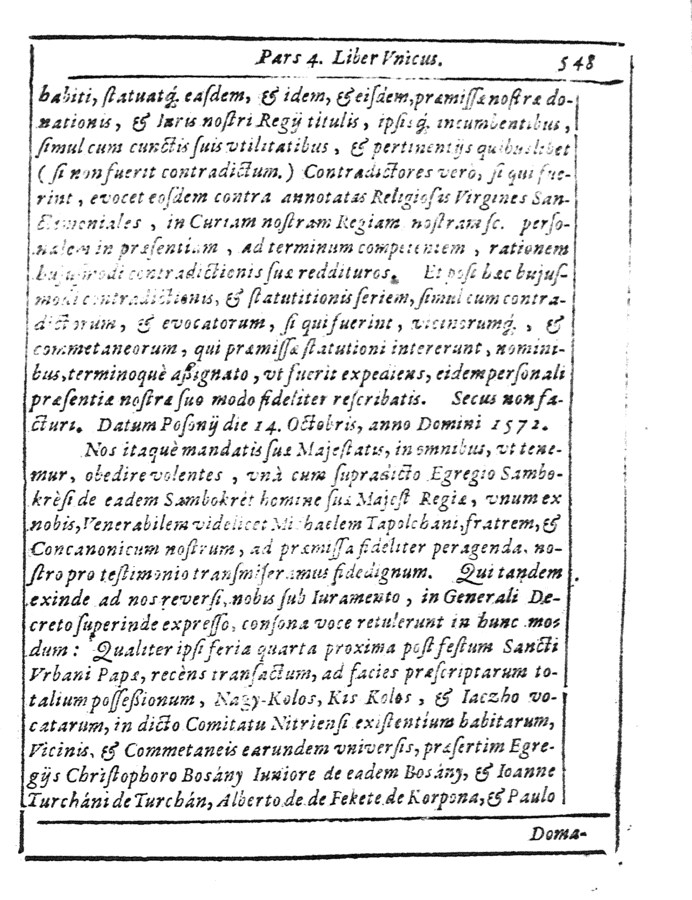 Pars 4. Liber Vnicus. 548
habiti, ſtatuatq́. eaſdem, & idem, & eiſdem, præmiſſæ noſtræ do-
nationis, & Iuris noſtri Regÿ titulis, ipſis q́. incumbentibus,
ſimul cum cunctis ſuis vtilitatibus, & pertinentÿs quibuslibet
( ſi non fuerit contradictum.) Contradictores verò, ſi qui fue-
rint, evocet eoſdem contra annotatas Religioſas Virgines San-
in Curiam noſtram Regiam noſtram ſc. perſo-
nalem in præſentiam, ad terminum competentem, rationem
hujuſmodi contradictionis ſuæ reddituros. Et poſt hæc hujuſ-
modi contradictionis, & ſtatutitionis ſeriem, ſimul cum contra-
dictorum, & evocatorum, ſi qui fuerint, vicinorumq́., &
commetaneorum, qui præmiſſæ ſtatutioni intererunt, nomini-
bus, terminoquè aſsignato, vt fuerit expediens, eidem perſonali
præſentiæ noſtræ ſuo modo fideliter reſcribatis. Secus non fa-
cturi. Datum Poſonÿ die 14. Octobris, anno Domini 1572.
Nos itaquè mandatis ſuæ Majeſtatis, in omnibus, vt tene-
mur, obedire volentes, vnà cum ſupradicto Egregio Sambo-
krèſi de eadem Sambokrèt homine ſuæ Majeſt Regiæ, vnum ex
nobis, Venerabilem videlicet Michaelem Tapolchani, fratrem, &
Concanonicum noſtrum, ad præmiſſa fideliter peragenda, no-
ſtro pro teſtimonio tranſmiſeramus fidedignum. Qui tandem
exinde ad nos reverſi, nobis ſub Iuramento, in Generali De-
creto ſuperinde expreſſo, conſona voce retulerunt in hunc mo
dum: Qualiter ipſi feria quarta proxima poſt feſtum Sancti
Vrbani Papæ, recèns tranſactum, ad facies præſcriptarum to-
talium poſſeſsionum, Nagy-Kolos, Kis Kolos, & Iaczho vo-
catarum, in dicto Comitatu Nitrienſi exiſtentium habitarum,
Vicinis, & Commetaneis earundem vniverſis, præſertim Egre-
gÿs Chriſtophoro Bosány Iuniore de eadem Bosány, & Ioanne
Turcháni de Turchán, Alberto de de Fekete de Korpona, & Paulo
Doma-